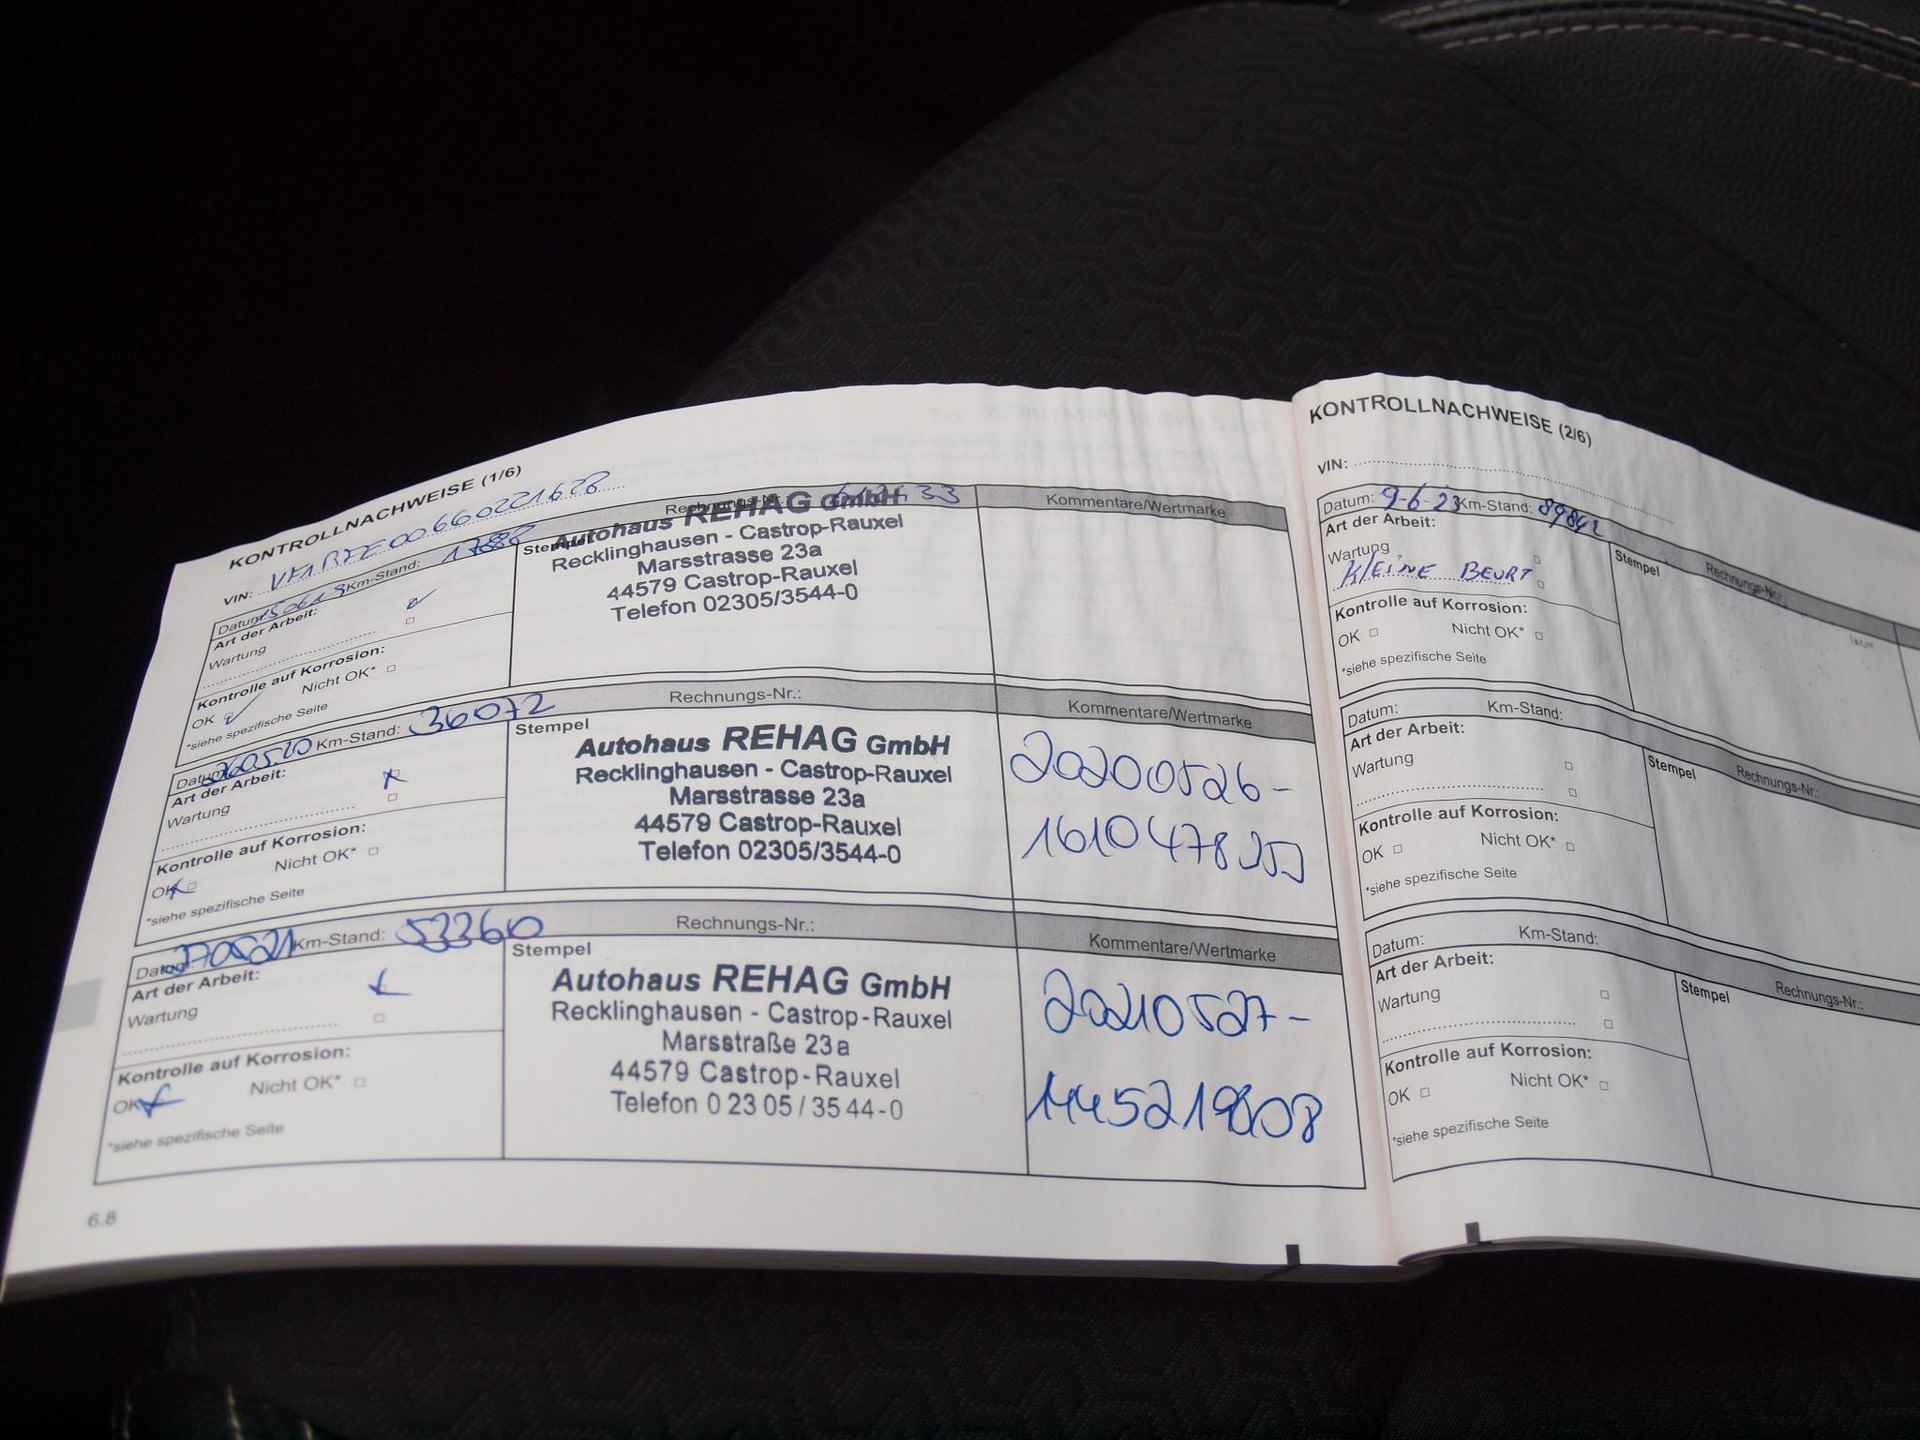 KONTROLLNACHWEISE (1/6)
VIN:
Datum: 150619 Km-Stand: Rechnungs-Nr.: Kommentare/Wertmarke
Art der Arbeit:
Wartung
Kontrolle auf Korrosion:
OK Nicht OK*
*siehe spezifische Seite
Stempel
Autohaus REHAG GmbH
Recklinghausen - Castrop-Rauxel
Marsstrasse 23a
44579 Castrop-Rauxel
Telefon 02305/3544-0
Datum: 260520 Km-Stand: 36072 Rechnungs-Nr.: Kommentare/Wertmarke
Art der Arbeit:
Wartung
Kontrolle auf Korrosion:
OK Nicht OK*
*siehe spezifische Seite
Stempel
Autohaus REHAG GmbH
Recklinghausen - Castrop-Rauxel
Marsstrasse 23a
44579 Castrop-Rauxel
Telefon 02305/3544-0
20200526-
Datum: 270521 Km-Stand: 53360 Rechnungs-Nr.: Kommentare/Wertmarke
Art der Arbeit:
Wartung
Kontrolle auf Korrosion:
OK Nicht OK*
*siehe spezifische Seite
Stempel
Autohaus REHAG GmbH
Recklinghausen - Castrop-Rauxel
Marsstraße 23a
44579 Castrop-Rauxel
Telefon 0 23 05 / 35 44-0
20210527-
6.8
KONTROLLNACHWEISE (2/6)
VIN:
Datum: 9-6-23 Km-Stand: 89842 Rechnungs-Nr.:
Art der Arbeit:
Wartung
KLEINE BEURT
Kontrolle auf Korrosion:
OK Nicht OK*
*siehe spezifische Seite
Stempel
Datum: Km-Stand: Rechnungs-Nr.:
Art der Arbeit:
Wartung
Kontrolle auf Korrosion:
OK Nicht OK*
*siehe spezifische Seite
Stempel
Datum: Km-Stand: Rechnungs-Nr.:
Art der Arbeit:
Wartung
Kontrolle auf Korrosion:
OK Nicht OK*
*siehe spezifische Seite
Stempel